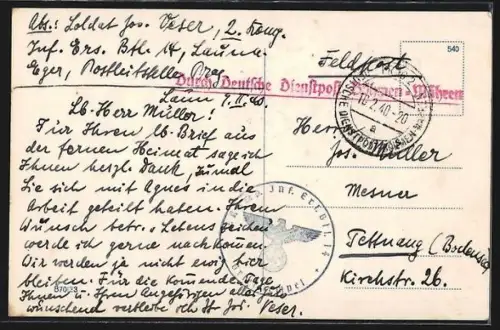 Abs.: Soldat Jos. Veser, 2. Komp.
Inf. Ers. Btl. 14, Launa.
Eger, Postleitstelle Prag.
Laun 7. II. 40.
Lb. Herr Müller!
Für Ihren lb. Brief aus
der fernen Heimat sage ich
Ihnen herzl. Dank, zumal
Sie sich mit Agnes in die
Arbeit geteilt haben. Ihrem
Wunsch betr. Lebenszeichen
werde ich gerne nachkommen.
Wir werden ja nicht ewig hier
bleiben. Für die kommende Tage
Ihnen u. Ihren Angehörigen alles Gute
wünschend verbleibe ich Ihr Jos. Veser.
B70/33
Feldpost
540
Durch Deutsche Dienstpost Böhmen-Mähren
10.2.40-20
a
Herrn
Jos. Müller
Mesner
Tettnang (Bodensee)
Kirchstr. 26.